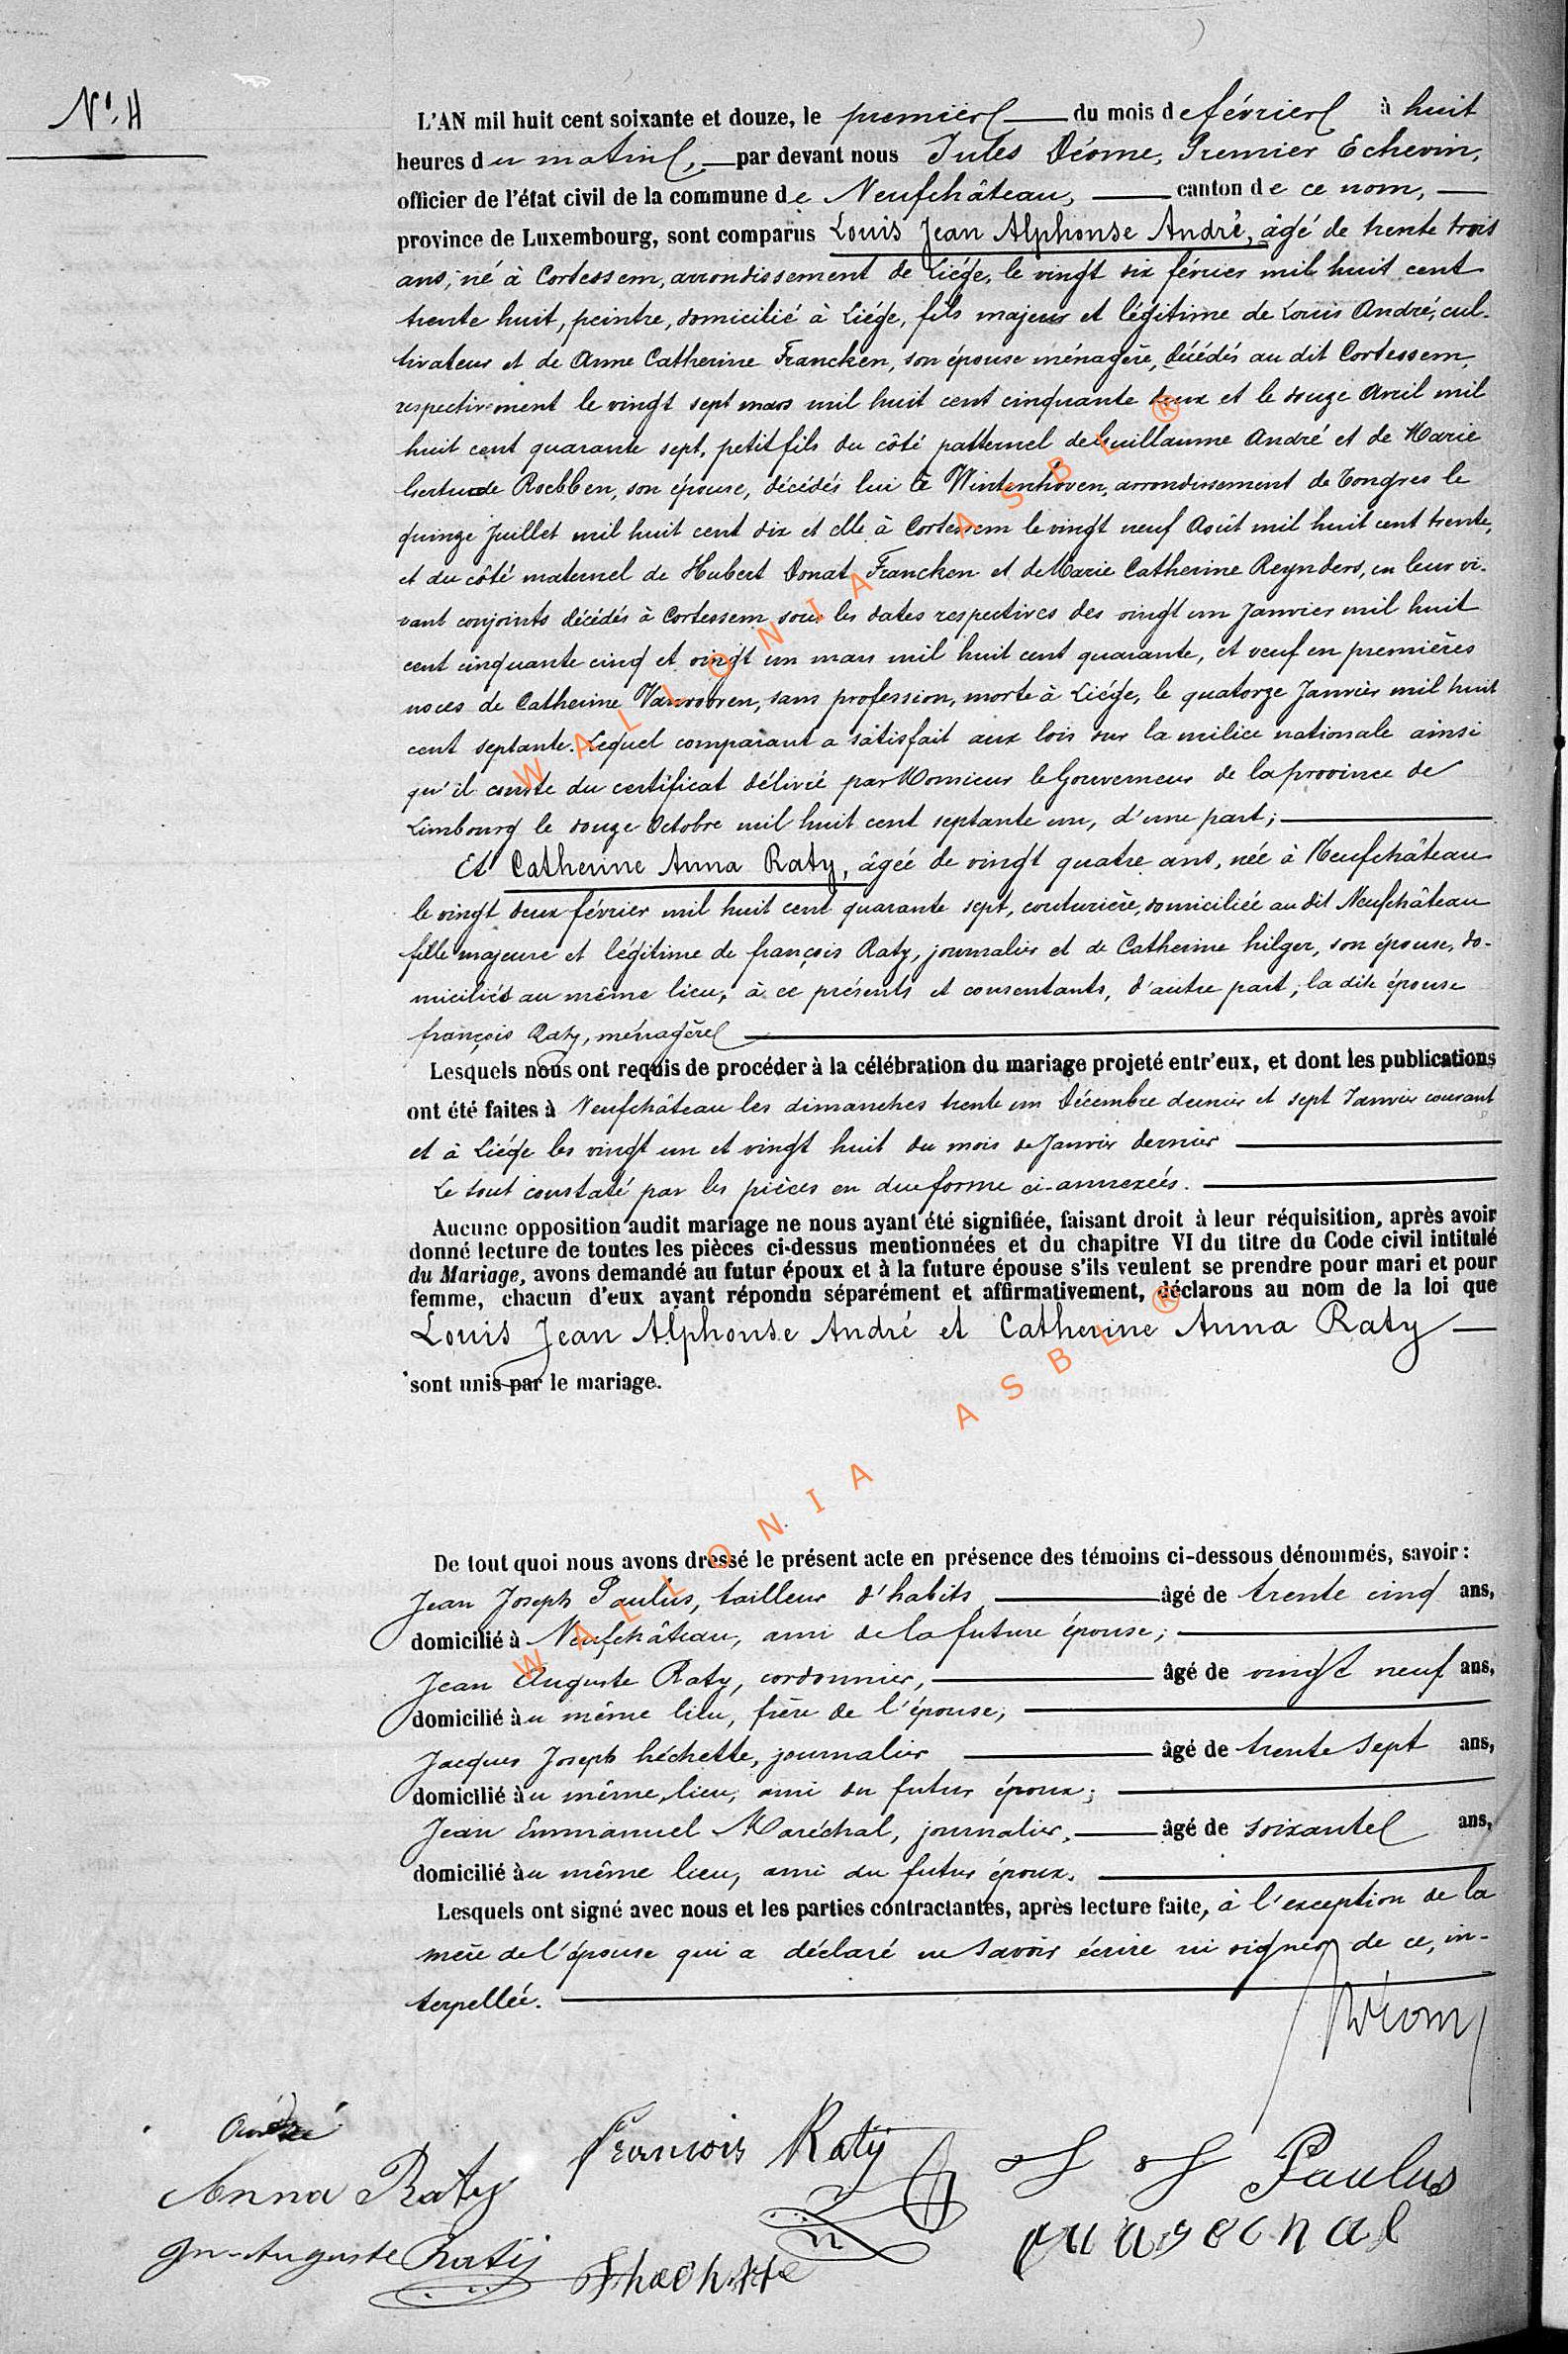 N° 4
L'AN mil huit cent soixante et douze, le premier du mois de février à huit
heures du matin, par devant nous Jules Déome, Premier Echevin,
officier de l'état civil de la commune de Neufchâteau, canton de ce nom,
province de Luxembourg, sont comparus Louis Jean Alphonse André, âgé de trente trois
ans, né à Cortessem, arrondissement de Liége, le vingt six février mil huit cent
trente huit, peintre, domicilié à Liége, fils majeur et légitime de Louis André, cul-
tivateur et de Anne Catherine Francken, son épouse ménagère, décédés au dit Cortessem,
respectivement le vingt sept mars mil huit cent cinquante deux et le douze Avril mil
huit cent quarante sept, petit fils du côté patternel de Guillaume André et de Marie
Gertrude Roebben, son épouse, décédés lui à Wintenhoven, arrondissement de Tongres le
quinze Juillet mil huit cent dix et elle à Cortessem le vingt neuf Août mil huit cent trente,
et du côté maternel de Hubert Donat Francken et de Marie Catherine Reynders, en leur vi-
vant conjoints décédés à Cortessem sous les dates respectives des vingt un Janvier mil huit
cent cinquante cinq et vingt un mars mil huit cent quarante, et veuf en premières
noces de Catherine, sans profession, morte à Liége, le quatorze Janvier mil huit
cent septante. Lequel comparant a satisfait aux lois sur la milice nationale ainsi
qu'il conste du certificat délivré par Monsieur le Gouverneur de la province de
Limbourg le douze Octobre mil huit cent septante un, d'une part;
Et Catherine Anna Raty, âgée de vingt quatre ans, née à Neufchâteau
le vingt deux février mil huit cent quarante sept, couturière, domiciliée au dit Neufchâteau
fille majeure et légitime de françois Raty, journalier et de Catherine hilger, son épouse, do-
miciliés au même lieu, à ce présents et consentants, d'autre part; la dite épouse
françois Raty, ménagère
Lesquels nous ont requis de procéder à la célébration du mariage projeté entr'eux, et dont les publications
ont été faites à Neufchâteau les dimanches trente un Décembre dernier et sept Janvier courant
et à Liége les vingt un et vingt huit du mois de Janvier dernier
Le tout constaté par les pièces en due forme ci-annexées.
Aucune opposition audit mariage ne nous ayant été signifiée, faisant droit à leur réquisition, après avoir
donné lecture de toutes les pièces ci-dessus mentionnées et du chapitre VI du titre du Code civil intitulé
du Mariage, avons demandé au futur époux et à la future épouse s'ils veulent se prendre pour mari et pour
femme, chacun d'eux ayant répondu séparément et affirmativement, déclarons au nom de la loi que
Louis Jean Alphonse André et Catherine Anna Raty
sont unis par le mariage.
De tout quoi nous avons dressé le présent acte en présence des témoins ci-dessous dénommés, savoir :
Jean Joseph Paulus, tailleur d'habits âgé de trente cinq ans,
domicilié à Neufchâteau, ami de la future épouse;
Jean Auguste Raty, cordonnier, âgé de vingt neuf ans,
domicilié au même lieu, frère de l'épouse;
Jacques Joseph héchette, journalier âgé de trente sept ans,
domicilié au même lieu, ami du futur époux;
Jean Emmanuel Maréchal, journalier, âgé de soixante ans,
domicilié au même lieu, ami du futur époux.
Lesquels ont signé avec nous et les parties contractantes, après lecture faite, à l'exception de la
mère de l'épouse qui a déclaré ne savoir écrire ni signer de ce, in-
terpellée.
Déome
André
François Raty
J J Paulus
Anna Raty
Jn-Auguste Raty
WALLONIA ASBL ®
WALLONIA ASBL ®